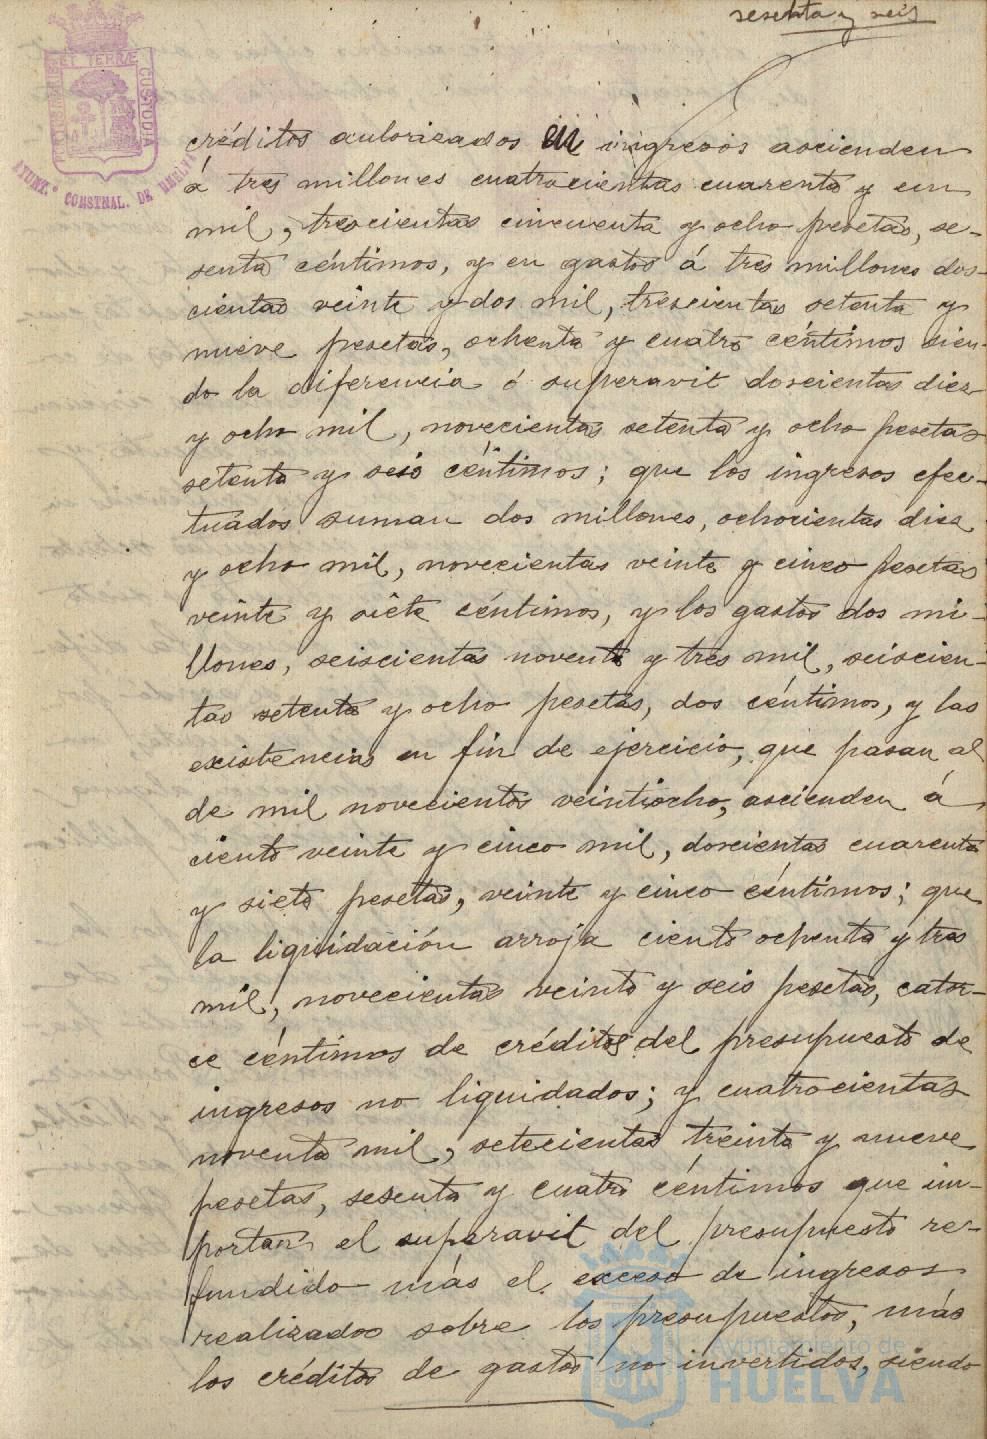 sesenta y seis
ET TERRÆ CUSTODIA
AYUNT.º CONSTNAL. DE HUELVA
créditos autorizados en ingresos ascienden
á tres millones cuatrocientas cuarenta y un
mil, trescientas cincuenta y ocho pesetas, se-
senta céntimos, y en gastos á tres millones dos-
cientas veinte y dos mil, trescientas setenta y
nueve pesetas, ochenta y cuatro céntimos sien-
do la diferencia ó superavit doscientas diez
y ocho mil, novecientas setenta y ocho pesetas
setenta y seis céntimos; que los ingresos efec-
tuados suman dos millones, ochocientas diez
y ocho mil, novecientas veinte y cinco pesetas
veinte y siete céntimos, y los gastos dos mi-
llones, seiscientas noventa y tres mil, seiscien-
tas setenta y ocho pesetas, dos céntimos, y las
existencias en fin de ejercicio, que pasan al
de mil novecientos veintiocho, ascienden á
ciento veinte y cinco mil, doscientas cuarenta
y siete pesetas, veinte y cinco céntimos; que
la liquidación arroja ciento ochenta y tres
mil, novecientas veinte y seis pesetas, cator-
ce céntimos de créditos del presupuesto de
ingresos no liquidados; y cuatrocientas
noventa mil, setecientas treinta y nueve
pesetas, sesenta y cuatro céntimos que im-
portan el superavit del presupuesto re-
fundido más el exceso de ingresos
realizados sobre los presupuestos, más
los créditos de gastos no invertidos, siendo
Ayuntamiento de
HUELVA